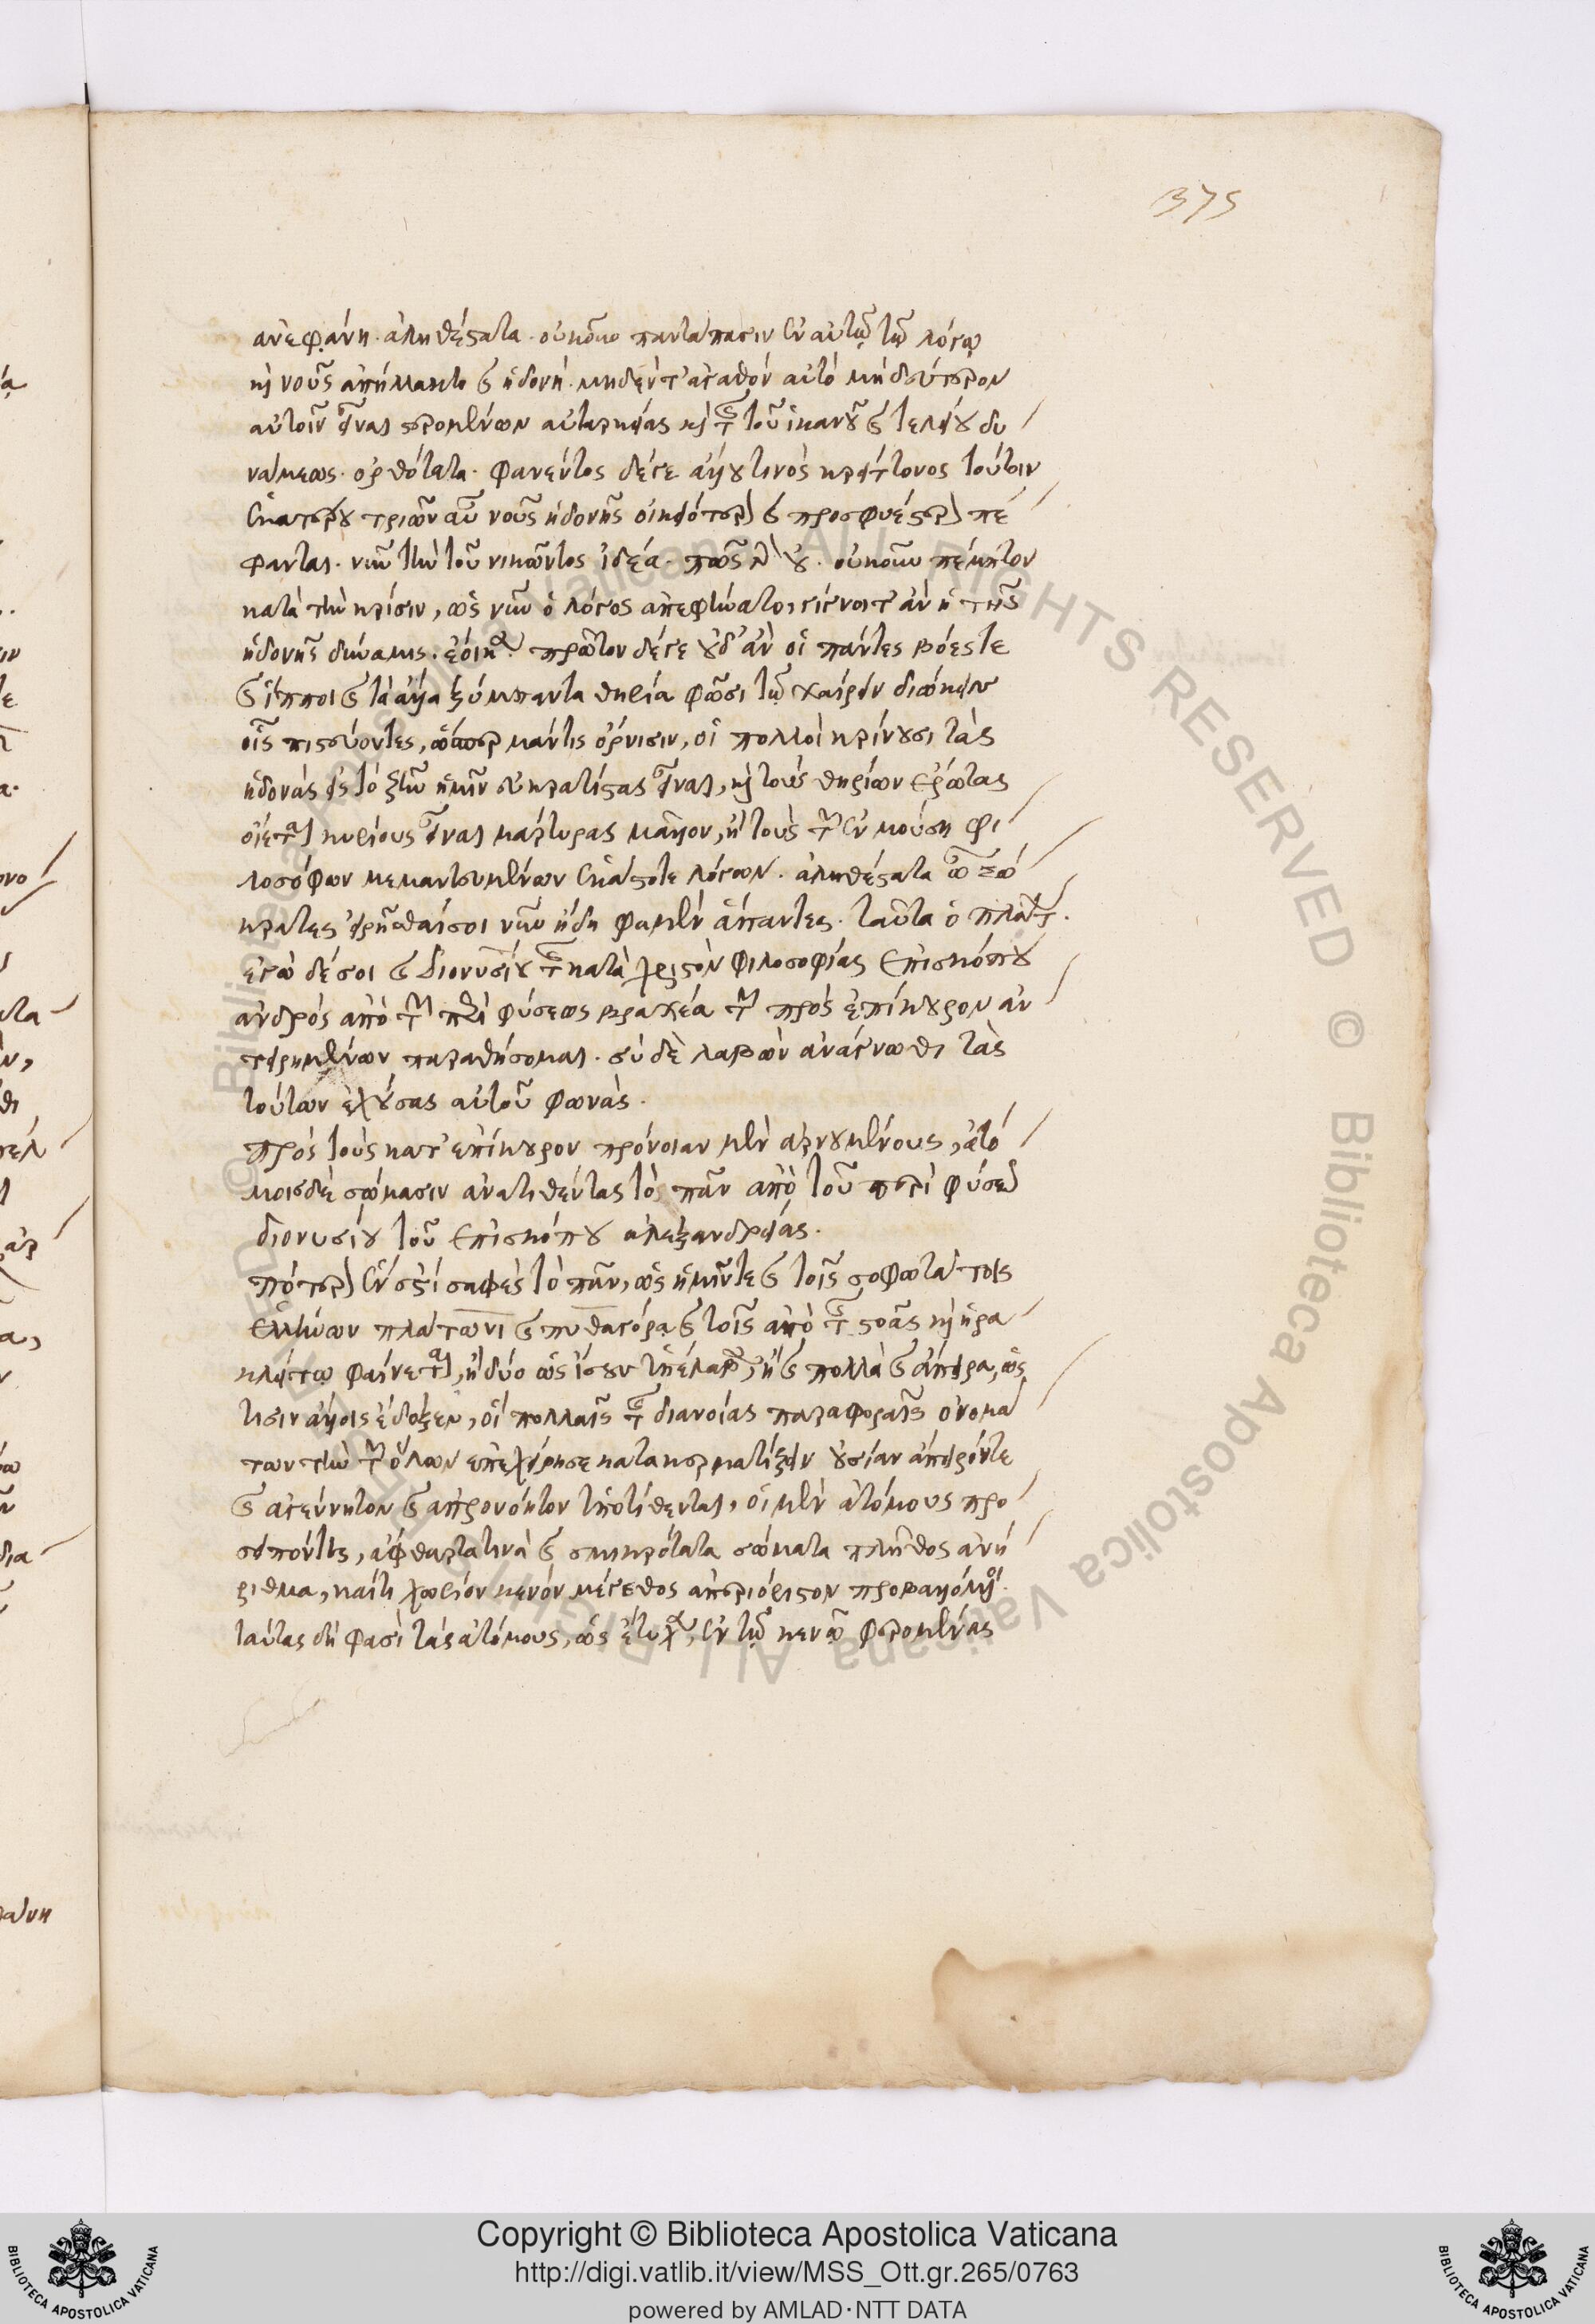 375
ἀνεφάνη. ἀληθέστατα. οὐκοῦν παντάπασιν ἐν αὐτῶ τῶ λόγω
καὶ νοῦς ἀπήλλακτο καὶ ἡδονή. μηδέν τ' ἀγαθὸν αὐτὸ μηδέτερον
αὐτοῖν εἶναι στερομένων αὐταρκείας καὶ τῆς τοῦ ἱκανοῦ καὶ τελείου δυ
νάμεως. ὀρθότατα. φανέντος δέ γε ἄλλου τινὸς κρείττονος τούτοιν
ἑκατέρου τριῶν αὖ νοῦς ἡδονῆς οἰκειότερον καὶ προσφυέστερον πέ
φανται. νῦν τῆ τοῦ νικῶντος ἰδέα. πῶς γὰρ οὔ. οὐκοῦν πέμπτον
κατὰ τὴν κρίσιν, ὡς νῦν ὁ λόγος ἀπεφήνατο, γίγνοιτ' ἂν ἡ τῆς
ἡδονῆς δύναμις. ἔοικε. πρῶτον δέ γε οὐδ' ἂν οἱ πάντες βόες τε
καὶ ἵπποι καὶ τὰ ἄλλα ξύμπαντα θηρία φῶσι τῶ χαίρειν διώκειν
οἷς πιστεύοντες, ὥσπερ μάντις ὄρνισιν, οἱ πολλοὶ κρίνουσι τὰς
ἡδονὰς εἰς τὸ ζῆν ἡμῖν εὖ κρατίστας εἶναι, καὶ τοὺς θηρίων ἔρωτας
οἴεται κυρίους εἶναι μάρτυρας μᾶλλον, ἢ τοὺς τῶν ἐν μούση φι
λοσόφων μεμαντευμένων ἑκάστοτε λόγων. ἀληθέστατα ὦ σώ
κρατες εἰρῆσθαί σοι νῦν ἤδη φαμὲν ἅπαντες. ταῦτα ὁ πλάτ.
ἐγὼ δέ σοι καὶ διονυσίου τῆς κατὰ χριστὸν φιλοσοφίας ἐπισκόπου
ἀνδρὸς ἀπὸ τῶν περὶ φύσεως βραχέα τῶν πρὸς ἐπίκουρον ἀν
τειρημένων παραθήσομαι. σὺ δὲ λαβὼν ἀνάγνωθι τὰς
τοῦτον ἐχούσας αὐτοῦ φωνάς.
πρὸς τοὺς κατ' ἐπίκουρον πρόνοιαν μὲν ἀρνουμένους, ἀτό
μοις δὲ σώμασιν ἀνατιθέντας τὸ πᾶν ἀπὸ τοῦ περὶ φύσεως
διονυσίου τοῦ ἐπισκόπου ἀλεξανδρείας.
πότερον ἕν ἐστί σαφὲς τὸ πᾶν, ὡς ἡμῖν τε καὶ τοῖς σοφωτάτοις
ἑλλήνων πλάτωνι καὶ πυθαγόρα καὶ τοῖς ἀπὸ τῆς στοᾶς καὶ ἡρα
κλείτω φαίνεται, ἢ δύο ὡς ἴσως τις ὑπέλαβεν, ἢ καὶ πολλὰ καὶ ἄπειρα, ὥς
τισιν ἄλλοις ἔδοξεν, οἳ πολλαῖς τῆς διανοίας παραφοραῖς ὀνομά
των τὴν τῶν ὅλων ἐπεχείρησε κατακερματίζειν οὐσίαν ἄπειρόν τε
καὶ ἀγέννητον καὶ ἀπρονόητον ὑποτίθενται, οἱ μὲν ἀτόμους προ
σειπόντες, ἄφθαρτα τινὰ καὶ σμικρότατα σώματα πλῆθος ἀνή
ριθμα, καί τι χωρίον κενὸν μέγεθος ἀπεριόριστον προβαλλόμενοι.
ταύτας δή φασὶ τὰς ἀτόμους, ὡς ἔτυχεν, ἐν τῶ κενῶ φερομένας
Copyright © Biblioteca Apostolica Vaticana
http://digi.vatlib.it/view/MSS_Ott.gr.265/0763
powered by AMLAD·NTT DATA